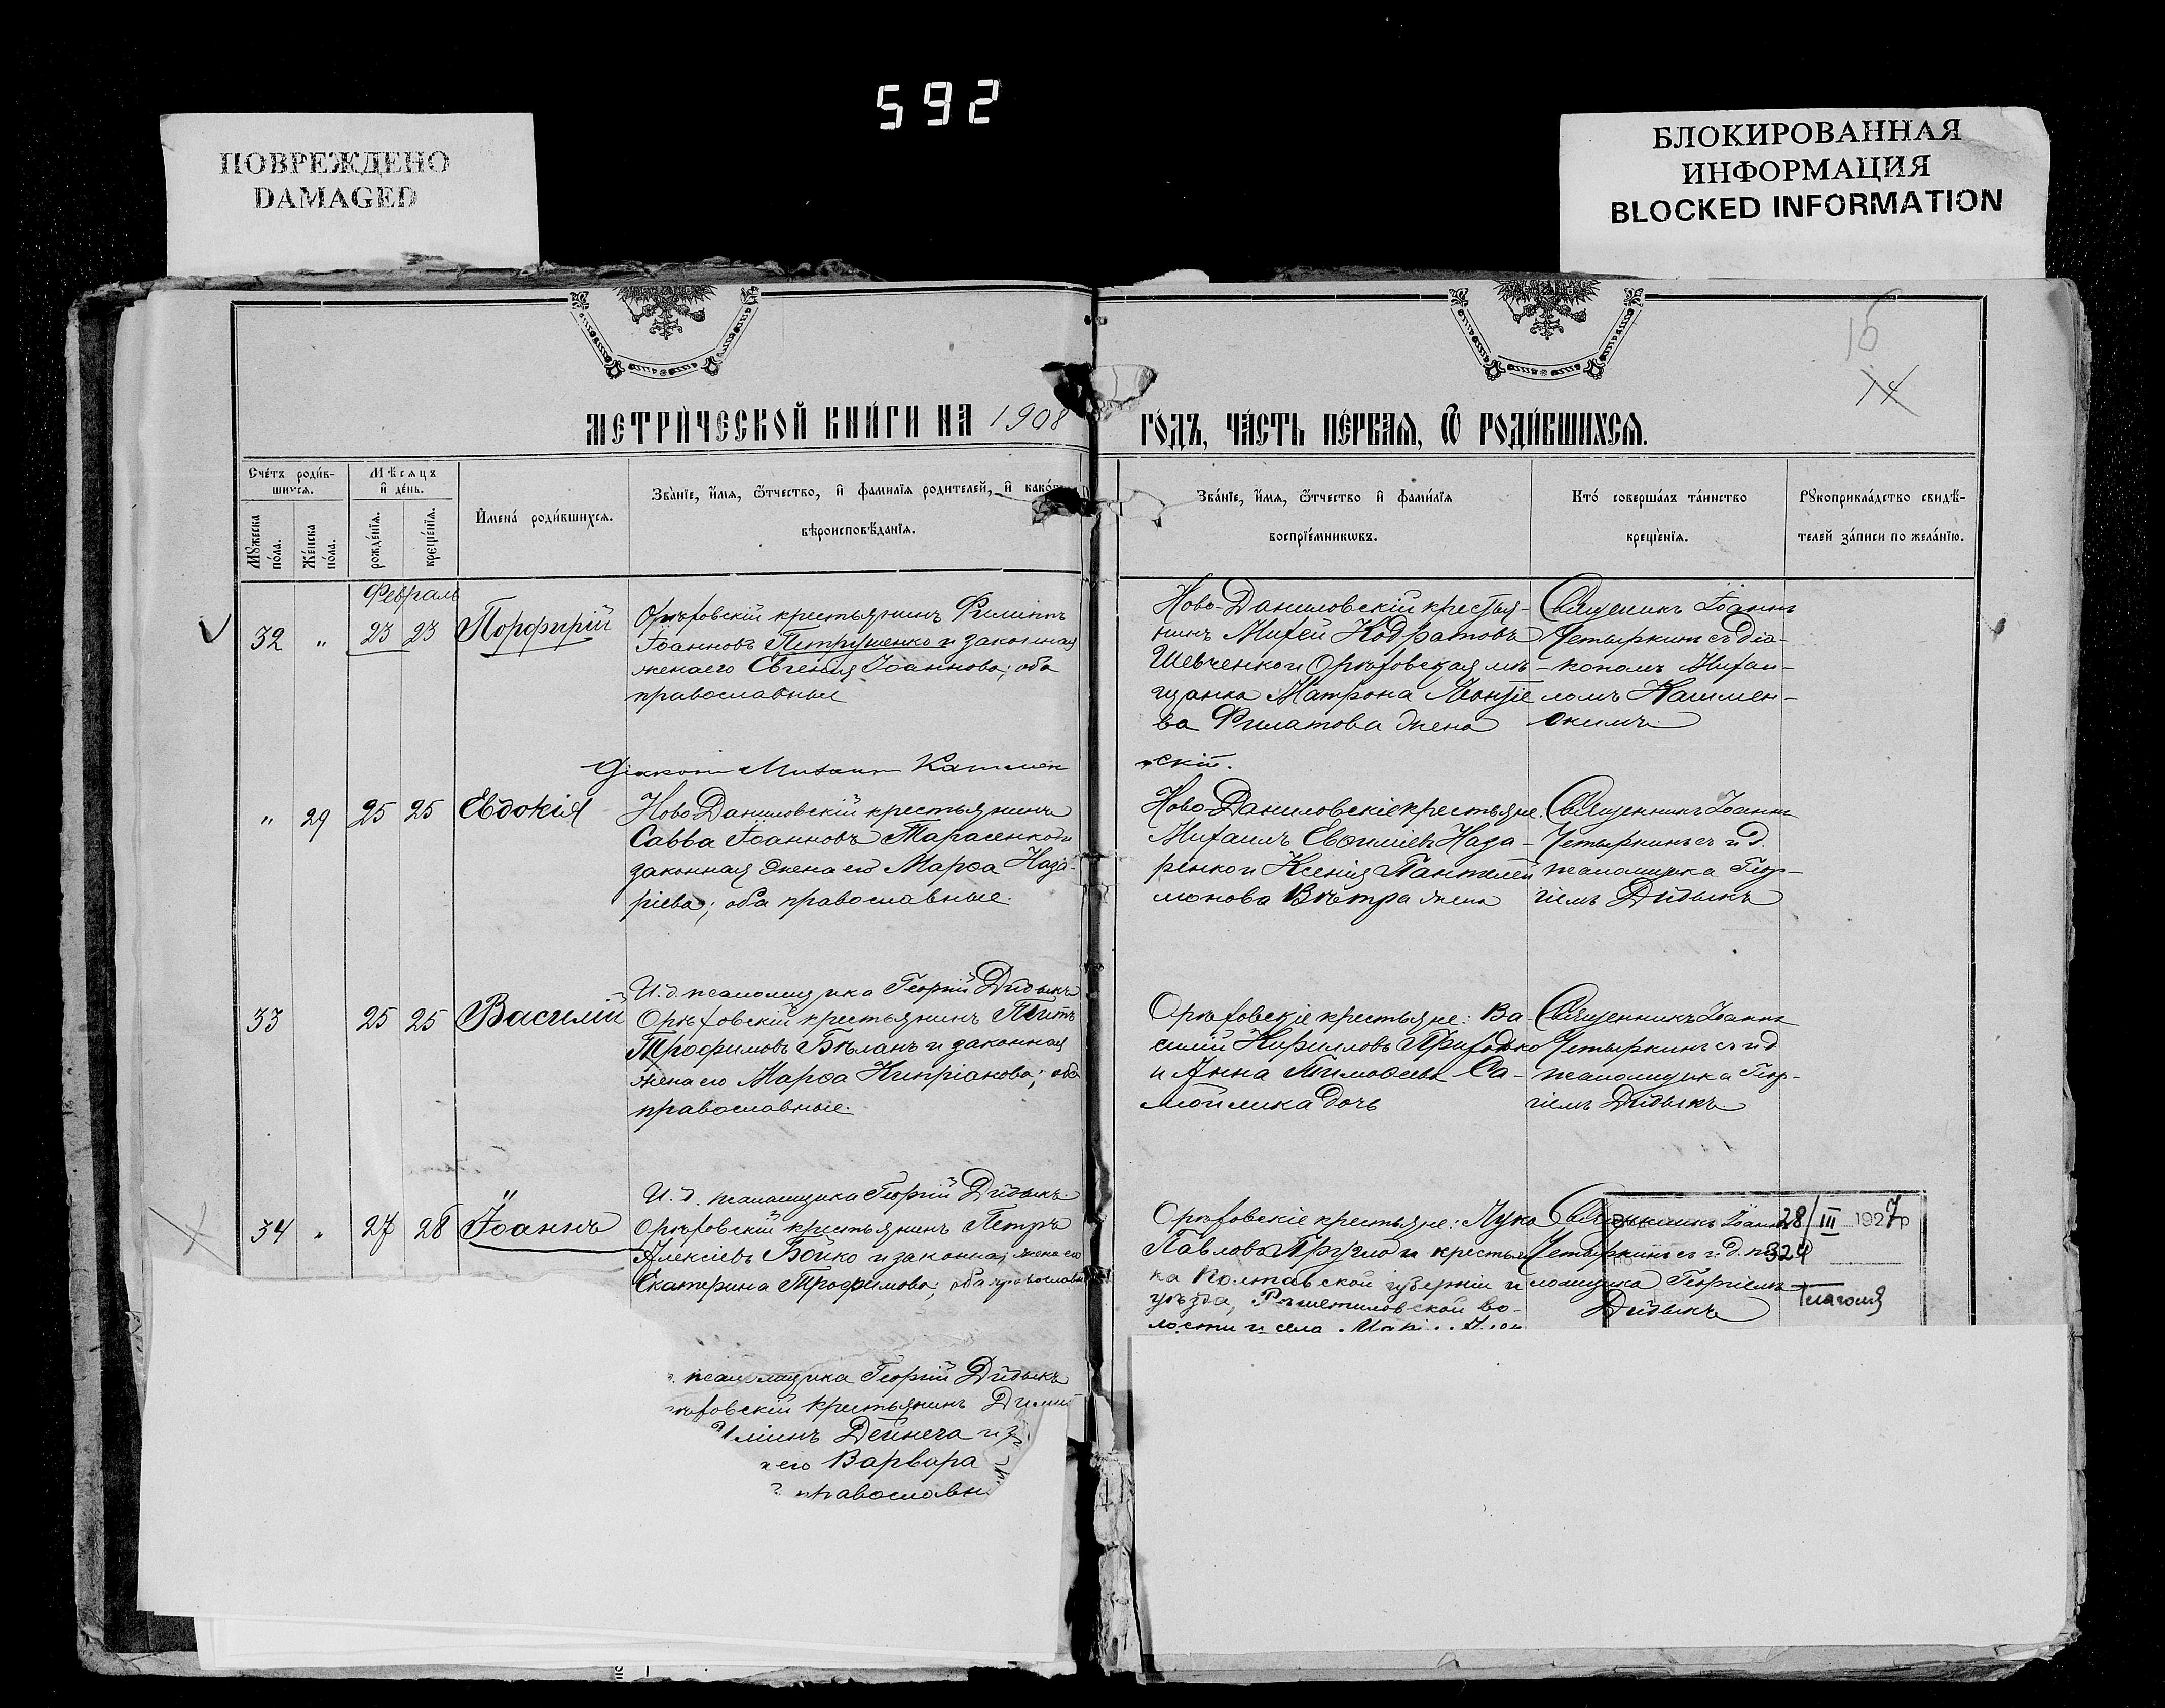 592
ПОВРЕЖДЕНО
DAMAGED
БЛОКИРОВАННАЯ
ИНФОРМАЦИЯ
BLOCKED INFORMATION
16
14
МЕТРИ́ЧЕСКОЙ КНИ́ГИ НА 1908
ГО́ДЪ, ЧА́СТЬ ПЕ́РВАѦ, Ѿ РОДИ́ВШИХСѦ.
Сче́тъ роди́в-
шихся.
Мѣ́сяцъ
и де́нь.
Мꙋ́жеска по́ла.
Же́нска по́ла.
рожде́нїя.
креще́нїя.
Имена́ роди́вшихся.
Зва́нїе, и́мя, ѻ́тчество, и фами́лїя родителей, и како́го
вѣроисповѣ́данїя.
Зва́нїе, и́мя, ѻ́тчество и фами́лїя
воспрїе́мникѡвъ.
Кто́ соверша́лъ та́инство
креще́нїя.
Рꙋкоприкла́дство свидѣ́-
телей за́писи по жела́нїю.
Февраль
32 " 23 23 Порфирій
Орѣховскій крестьянинъ Филиппъ
Іоанновъ Петрушенко и законная
жена его Евгенія Іоаннова; оба
православные
Ново-Даниловскій крестья-
нинъ Михей Кодратовъ
Шевченко и Орѣховская мѣ-
щанка Матрона Леонтіе
ва Филатова жена
Священикъ Іоаннъ
Четыркинъ съ діа-
кономъ Михаи-
ломъ Кашмен-
скимъ
Діаконъ Михаилъ Кашмен
скій.
" 29 25 25 Евдокія
Ново Даниловскій крестьянинъ
Савва Іоанновъ Тарасенко и
законная жена его Марѳа Наза-
ріева; оба православные.
Ново Даниловскіе крестьяне
Михаилъ Наза-
ренко и Ксенія Пантелей
монова Вѣтра жена
Священникъ Іоаннъ
Четыркинъ съ и. д.
псаломщика Геор-
гіемъ Дидыкъ
И. д. псаломщика Георгій Дидыкъ
33 25 25 Василій
Орѣховскій крестьянинъ
Трофимовъ Бѣланъ и законная
жена его Марѳа Кипріанова; оба
православные.
Орѣховскіе крестьяне: Ва-
силій Кирилловъ Приходько
и Анна Тимоѳеева Са-
мойлика дочь
Священникъ Іоаннъ
Четыркинъ съ и д
псаломщика Геор-
гіемъ Дидыкъ
И. д. псаломщика Георгій Дидыкъ
34 " 27 28 Іоаннъ
Орѣховскій крестьянинъ Петръ
Алексіевъ Бойко и законная жена его
Екатерина Трофимова; оба православн
Орѣховскіе крестьяне: Лука
Павловъ Кругло и крестьян
ка Полтавской губерніи и
уѣзда, Рѣшетиловской во-
лости и села
Священникъ Іоаннъ
Четыркинъ съ и. д. пса
ломщика Георгіемъ
Дидыкъ
28/III 1927 р
324
псаломщика Георгій Дидыкъ
ховскій крестьянинъ
Дейнега и з
его Варвара
православн